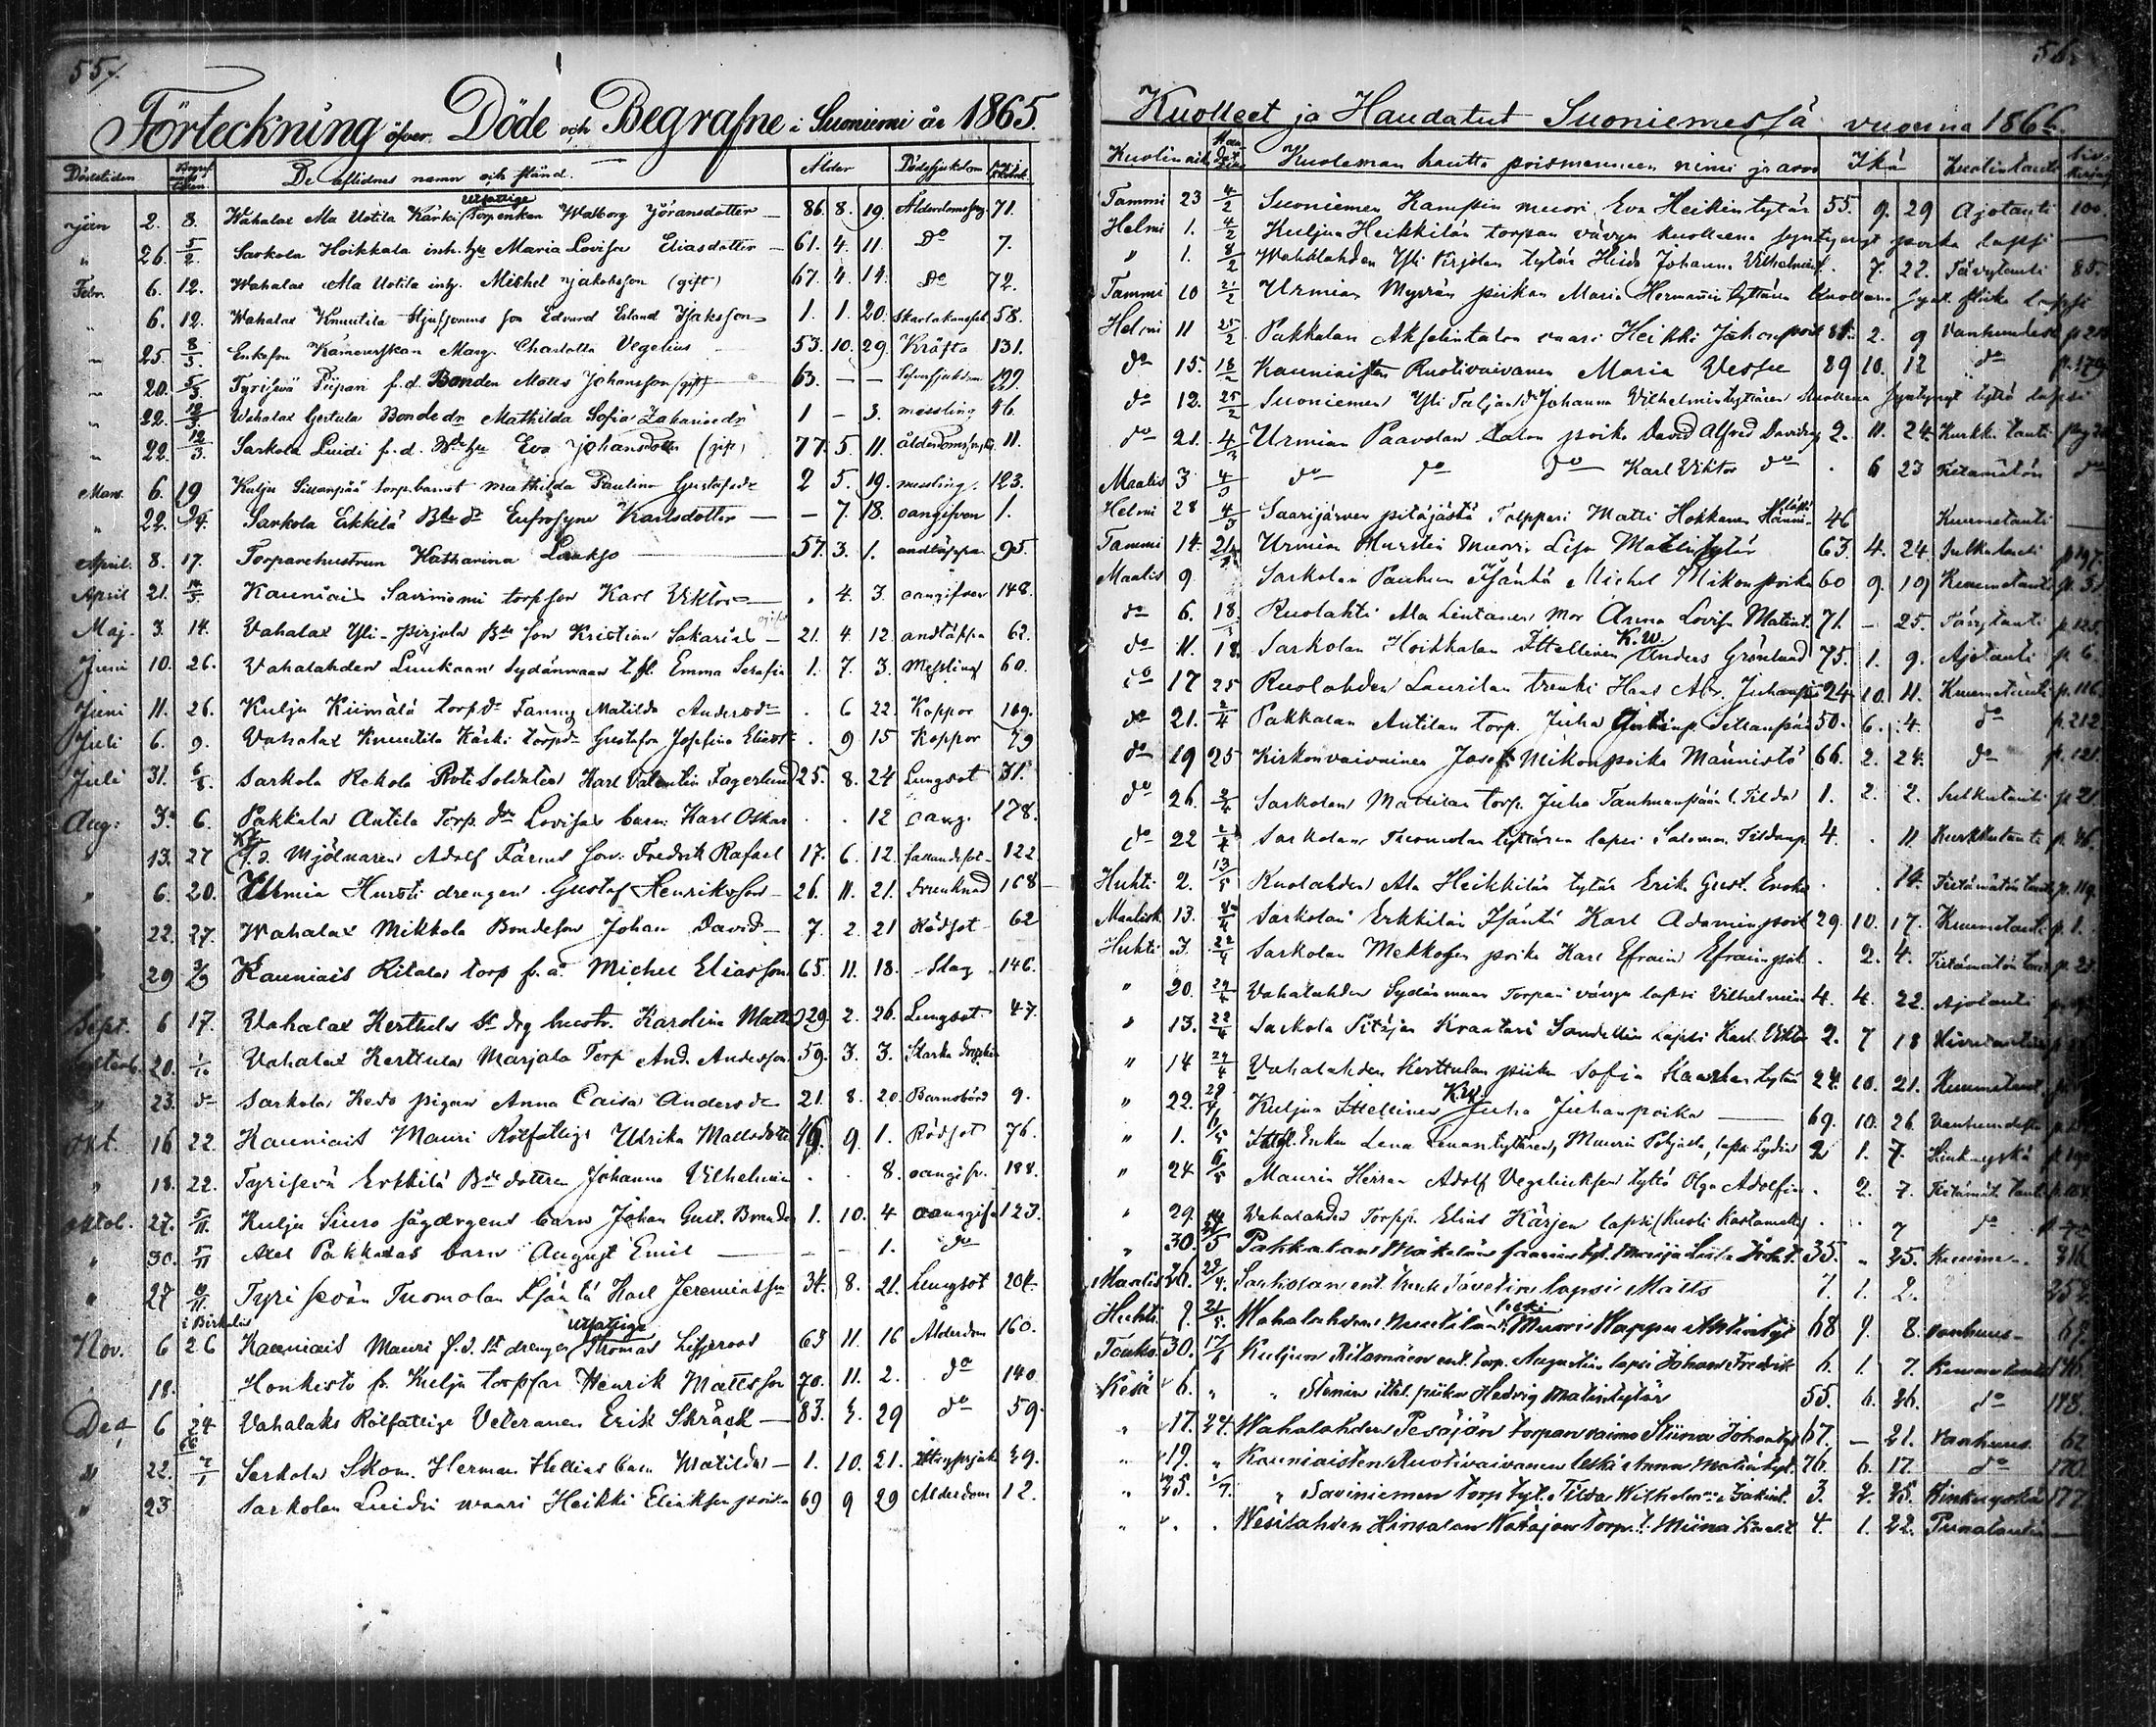 55.
Förteckning öfver Döde och Begrafne i Suoniemi år 1865.
Dödstiden Begrafn. tiden De aflidnes namn och stånd. Ålder Dödssjukdom
utfattige
Jan 2. 8. Wahalax Ala Uotila Kärki Torpenkan Walborg Jöransdotter 86. 8. 19. Ålderdomsbr. 71.
" 26. 5/2. Sarkola Hoikkala inh. hu Maria Lovisa Eliasdotter 61. 4. 11 Do 7.
Febr. 6. 12. Wahalax Ala Uotila inhg. Mickel Jakobsson (gift) 67. 4. 14. Do 72.
" 6. 12. Wahalax Knuutila son Edvard Erland Isaksson 1. 1. 20. Skarlakansfeb. 58.
" 25. 8/3. Enkefru Kamererskan Marg. Charlotta Vegelius 53. 10. 29. Kräfta 131.
" 20. 5/3. Tyrisevä Piipari f.d. Bonden Matts Johansson (gift) 63. — — 199.
" 22. 12/3. Wahalax Gertula Bonde dr Mathilda Sofia Zakariedr 1 — 3. messling 46.
" 22. 12/3. Sarkola Luidi f.d. Bde hu Eva Johansdotter (gift) 77. 5. 11. ålderdomsbr. 11.
Mars. 6. 19 Kulju Sillanpää torp. barnet Mathilda Paulina Gustafsdr 2 5. 19. messling. 123.
" 22. 2/4. Sarkola Erkkilä Bde dr Eufrosyne Karlsdotter — 7. 18. oangifven 1.
April. 8. 17. Torparehustrun Katharina Laakso 57. 3. 1. andtäppa 95.
April 21. 14/5. Kauniais Saviniemi torp son Karl Viktor . 4. 3. oangifven 148.
Maj. 3. 14. Vahalax Yli-Pirjola Bde son Kristian Sakarias 21. 4. 12. andtäppa 62.
Juni 10. 26. Vahalahden Luukaan Sydänmaan Emma Serafia 1. 7. 3. Messling 60.
Juni 11. 26. Kulju Kiimälä torp dr Fanny Matilda Andersdr . 6 22. Koppor 109.
Juli 6. 9. Vahalax Knuutila Kärki torp dr Gustafva Josefina Eliasdr . 9 15 Koppor 79
Juli 31. 6/8. Sarkola Rekola Rote Soldaten Karl Valentin Fagerlund 25. 8. 24 Lungsot 31.
Aug: 3. 6. Pakkala Antila Torp. dr Lovisas barn: Karl Oskar . . 12 oang. 178.
" 13. 27 f.d. Mjölnaren Adolf Färms son: Fredrik Rafael 17. 6. 12. fallandesot 122
" 6. 20. Urmia Hursti drengen Gustaf Henriksson 26. 11. 21. drunknad 168
" 22. 27. Wahalax Mikkola Bondeson Johan David 7. 2. 21 Rödsot 62
" 29 3/9 Kauniais Ritala torp f.d. Michel Eliasson 65. 11. 18. Slag 146.
Sept. 6 17. Vahalax Kerttula drg hustr. Karolina Matts 29. 2. 26. Lungsot. 47.
Septemb. 20. 1/10 Vahalax Kerttula Marjala Torp And. Andersson 59. 3. 3. Starka drycker
" 23. do Sarkola Kedo pigan Anna Caisa Andersdr 21. 8. 20. Barnsbörd 9.
Okt. 16 22. Kauniais Mauri Rotfattige Ulrika Mattsdotter 46. 9. 1. Rödsot 76.
" 18. 22. Tyrisevä Erkkilä Bde dottren Johanna Vilhelmina . . 8. oangifv. 188.
oktob. 27. 5/11. Kulju Siuro sågdrgens barn Johan Gust. Brander 1. 10. 4 oangifv 123.
" 30. 5/11 Axel Pakkalas barn August Emil — — 1. do
" 27 10/11. Tyrisevän Tuomolan Isäntä Karl Jeremiasson 34. 8. 21. Lungsot 204.
i Birkala utfattige
Nov. 6 26 Kauniais Mauri f.d. St drengen Thomas Liljeroos 63 11. 16 Ålderdom 160.
" 18. Honkisto fr. Kulju torpfar Henrik Mattsson 70. 11. 2. do 140
Dec. 6 24 Vahalaks Rotfattige Veteranen Erik Skräck 83. 3. 29 do 59.
" 22. 7/1 Sarkola Skom. Herman Hellias barn Matilda 1. 10. 21. 29.
" 23 Sarkolan Luidin waari Heikki Eliaksen poika 69 9 29 Ålderdom 12.
56
Kuolleet ja Haudatut Suoniemessä vuonna 1866.
Kuolinaik. Kuoleman kautta poismenneen nimi ja arvo Ikä Kuolintauti
Tammi 23 4/2 Suoniemen Kampin muori Eva Heikintytär 55. 9. 29 Ajotauti 100.
Helmi 1. 4/2 Kuljun Heikkilän torpan vävyn kuolleena syntynyt poika lapsi —
" 1. 8/2 Wahalahden Yli Pirjolan tytär Hilda Johanna Vilhelmina . 7. 22. Tävytauti 85.
Tammi 10 21/2 Urmian Myrrän piikan Maria Hermannin tyttären kuollena synt. piika lapsi
Helmi 11 25/2 Pakkalan Akselintalon vaari Heikki Jakonpoik 81. 2. 9 Vanhuudest
do 15. 18/2 Kauniaisten Ruotivaivanen Maria Vesse 89 10. 12 do p. 179
do 12. 25/2 Suoniemen Yli Taljan dr Johanna Vilhelmintyttären kuollena syntynyt tyttö lapsi
do 21. 4/3 Urmian Paavolan talon poika David Alfred Davidinp 2. 11. 24. Kurkku tauti
Maalis 3 4/3 do do do Karl Viktor do . 6 23 Tietämätön do
Helmi 28 4/3 Saarijärven pitäjästä Talpperi Matti Hokkanen 46 Kuumetauti —
Tammi 14. Urmian Hurstin muori Lisa Matintytär 63. 4. 24. Sulkutauti p. 197.
Maalis 9 Sarkolan Pauhun Isäntä Michel Mikonpoika 60 9. 19 Kuumetauti p. 3
do 6. 18. Ruolahti Ala Lintanen Mor Anna Lovisa Matint. 71. — 25. Tävytauti p. 125.
do 11. 18. Sarkolan Hoikkalan Itsellinen K.W. Anders Grönlund 75. 1. 9. Ajotauti p. 6.
do 17 25 Ruolahden Laurilan trenki Hans Abr. Juhanp 24 10. 11. Kuumetauti p. 116.
do 21. 2/4 Pakkalan Antilan torp. Juha Sillanpää 50. 6. 4. do p. 212
do 19 25 Kirkonvaivainen Josef Mikonpoika Männistö 66. 2. 24. do p. 121.
do 26. 2/4 Sarkolan Mattilan torp. Juha Tauhmanpään l. Tilda 1. 2. 2. Sulkutauti p. 21
do 22 2/4 Sarkolan Tuomolan tyttären lapsi Salomon Tildanp 4. . 11 Kurkkutauti p. 46.
Huhti 2. 13/5 Ruolahden Ala Heikkilän tytär Erika Gust. Enoks . . 14. Tietämätön tauti p. 119.
Maalisk. 13. 8/4 Sarkolan Erkkilän Isäntä Karl Adaminpoik 29. 10. 17. Kuumetauti p. 1.
Huhti 3. 22/4 Sarkolan Mekkosen poika Karl Efraim Efraiminpoik . 2. 4. Tietämätön tauti p. 23.
" 20. 29/4 Vahalahden Sydänmaan Torpari vävyn lapsi Vilhelmina 4. 4. 22. Ajotauti
" 13. 22/4 Sarkola Pitäjän Kraatari Sandellin lapsi Karl Viktor 2. 7 18
" 14 29/4 Vahalahden Kerttulan piika Sofia Kaarlentytär 24. 10. 21. Kuumetauti
" 22. 29/4 Kuljun Itsellinen K.W. Juha Juhanpoika 69. 10. 26. Vanhuudesta
" 1. 6/5 Lena tyttären, Maurin Pohjala, laps. Lydia 2 1. 7. Hinkuyskä
" 24 6/5 Maurin Herran Adolf Vegeliuksen tyttö Olga Adolfina . 2. 7. Tietämät. tauti
" 29. Vahalahden Torpp. Elias Kärjen lapsi (Kuoli Kastamatta) . . 7 do
" 30. Pakkalan Mäkelän Maria Lisa Johat. 35. " 25. Kuume- 216.
Maalis 26. 29/4. Sarkolan Tävetin lapsi Matts 7. 1. 2. 252
Huhti 9. 21/5. Wahalahden Knuutilan leski Muori Kappu Antintyt 68 9. 8. vanhuus- 67.
Touko. 30. 17/6 Kuljun Ritamäen ent. torp. Augustin lapsi Johan Fredrik 6. 1. 7. Kuumetauti 146.
Kesä " 6. " " Stenin ittel. piika Hedvig Matintytär 55. 6. 26. do 148.
" " 17. 24. Wahalahden Pesäjän torpan vaimo Stiina Johantyt 67. — 21. vanhuus. 62
" " 19. " Kauniaisten Ruotivaivanen leski Anna Matintyt. 76. 6. 17. do 170.
" 25. 1/7. " Saviniemen torp. tyt. Tilda Wilhelmiina Isakint. 3. 2. 25. Hinkuyskä 177
" " . . Wesilahden Hinsalan Katajan torp. t. Miina 4. 1. 22. Punatauti —